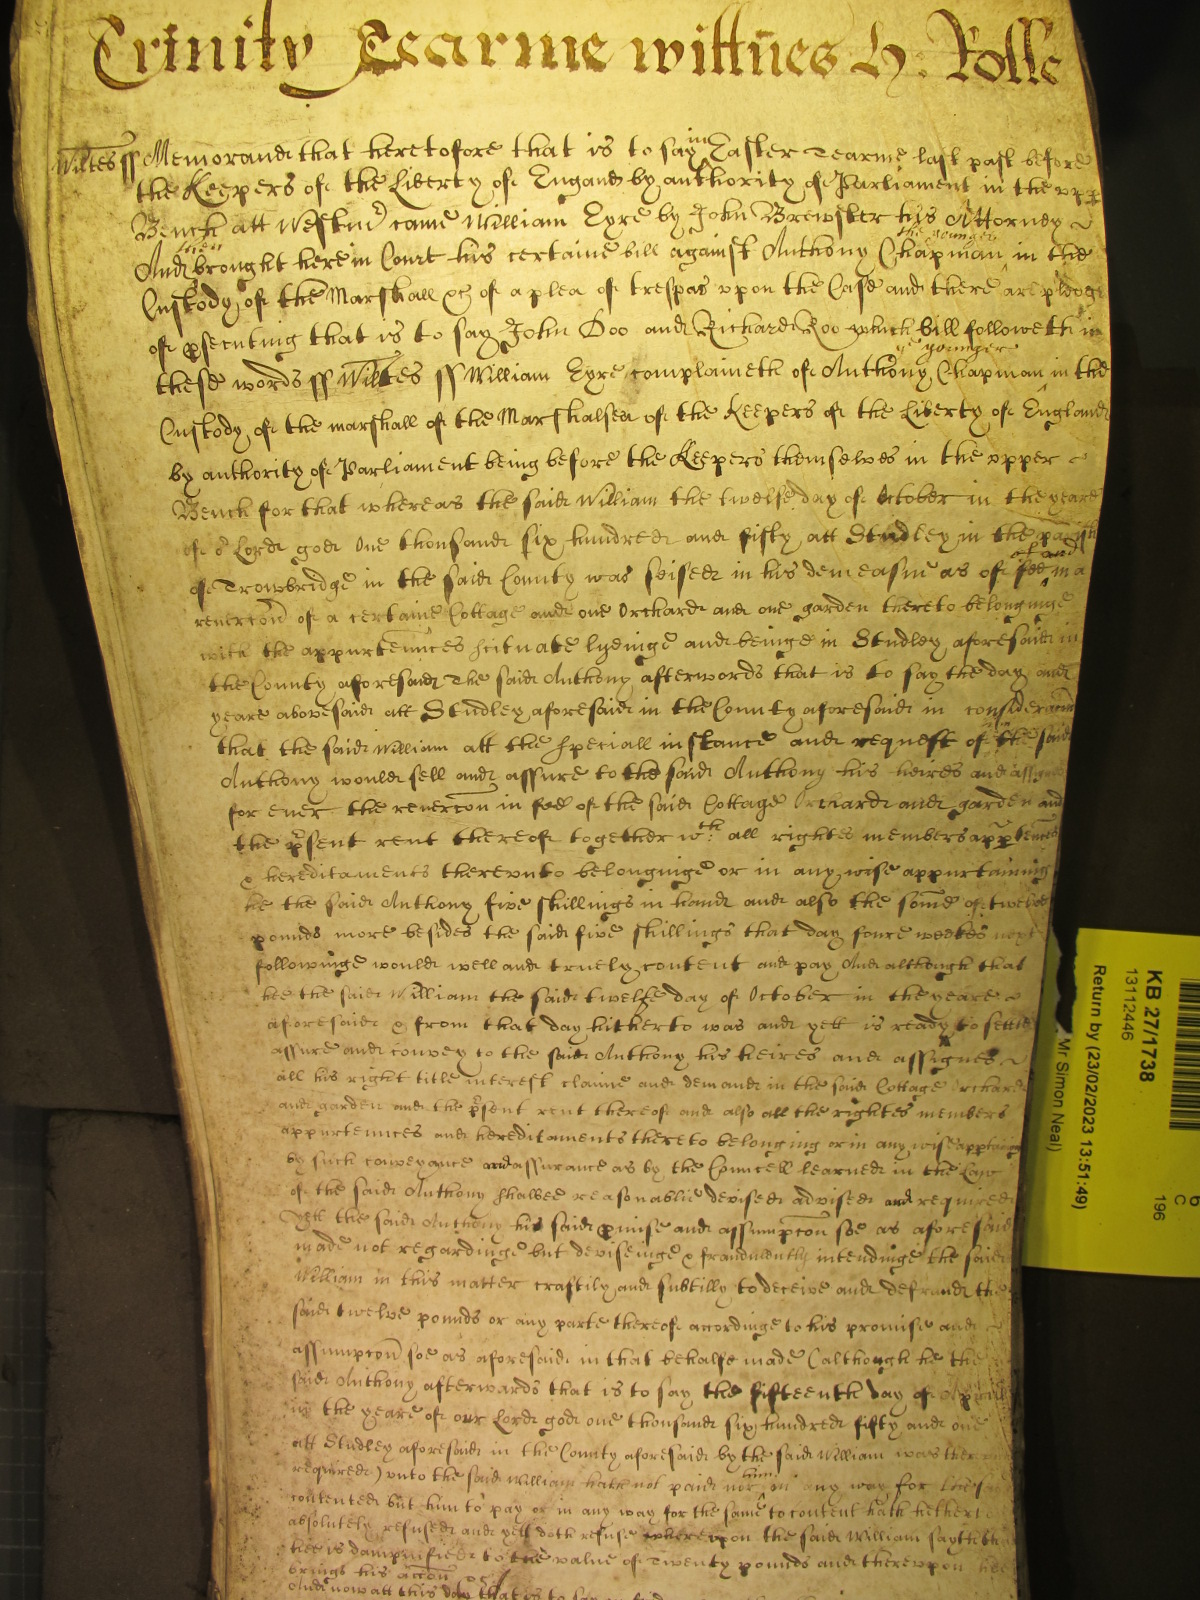 Trinity Tearme wittnes H: Rolle
Wiltes ss Memorand that heretofore that is to say in Easter Tearme last past before
the Keepers of the Liberty of England by authority of Parliament in the vpp
Bench att Westmr came William Eyre by John Brewster his Attorney
And then brought here in Court his certaine bill against Anthony Chapman the younger in the
Custody of the Marshall &c of a plea of trespas vpon the Case and there are pledges
of psecuting that is to say John Doo and Richard Roo which bill followeth in
these words ss Wiltes ss William Eyre complaineth of Anthony Chapman ye younger in the
Custody of the marshall of the Marshalsea of the Keepers of the Liberty of England
by authority of Parliament being before the Keepers themselves in the vpper
Bench for that whereas the said William the twelfe day of October in the yeare
of or Lord god One thousand six hundred and fifty att Studley in the parish
of Trowbridge in the said County was seised in his demeasne as of fee of and in a
revercon of a certaine Cottage and one Orchard and one garden thereto belonginge
with the appurtennces scituate lyeinge and beinge in Studley aforesaid in
the County aforesaid The said Anthony afterwords that is to say the day and
yeare abovesaid att Studley aforesaid in the County aforesaid in consideracon
that the said William att the speciall instance and request of the said
Anthony would sell and assure to the said Anthony his heires and assignes
for ever the revercon in fee of the said Cottage Orchard and garden and
the psent rent thereof together wth all rightes members apptennces
& hereditaments therevnto belonginge or in any wise appurtaining
he the said Anthony five shillings in hand and also the some of twelve
pounds more besides the said five shillings that day foure weekes next
followinge would well and truely content and pay And although that
hee the said William the said twelfe day of October in the yeare
aforesaid & from that day hitherto was and yett is ready to settle
assure and convey to the said Anthony his heires and assignes
all his right title interest claime and demand in the said Cottage Orchard
and garden and the psent rent thereof and also all the rightes members
appurtennces and hereditaments thereto belonging or in any wise apptaining
by such conveyance and assurance as by the Councell learned in the Law
of the said Anthony shalbee reasonablie devised advised and required
Yett the said Anthony his said pmise and assumpcon soe as aforesaid
made not regardinge but deviseinge & fraudulently intendinge the said
William in this matter craftily and subtilly to deceive and defraud the
said twelve pounds or any parte thereof accordinge to his promise and
assumpcon soe as aforesaid in that behalfe made (although he the
said Anthony afterwards that is to say the fifteenth day of Aprill
in the yeare of our Lord god one thousand six hundred fifty and one
att Studley aforesaid in the County aforesaid by the said William was
required) vnto the said William hath not paid nor him in any way for the same
contented but him to pay or in any way for the same to content hath hitherto
absolutely refused and yett doth refuse wherevpon the said William sayth that
hee is dampnified to the value of Twenty pounds and therevpon hee
brings his accon &c
And now att this day that is to say
KB 27/1738
13112446
Return by (23/02/2023 13:51:49)
Mr Simon Neal)
196
C